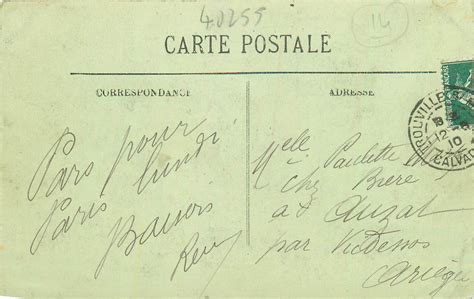 40255
14
CARTE POSTALE
CORRESPONDANCE
ADRESSE
Pars pour
Paris lundi
Baisers
TROUVILLE
12
10
CALVADOS
Melle Paulette
chez
à Auzat
par Vicdessos
Ariège